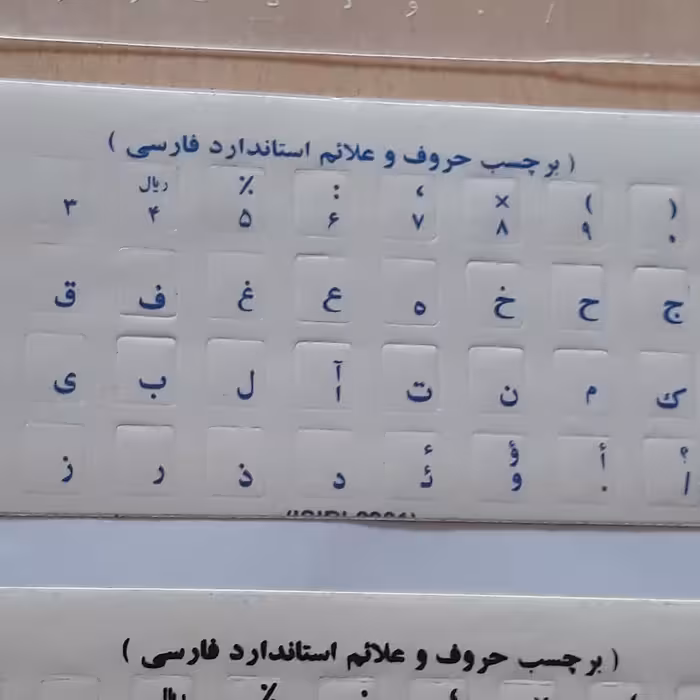 ( برچسب حروف و علائم استاندارد فارسی )
( ) × ، : ٪ ریال
۰ ۹ ۸ ۷ ۶ ۵ ۴ ۳
ج ح خ ه ع غ ف ق
آ
ک م ن ت ا ل ب ی
؟ أ ؤ ء
/ . و ئ د ذ ر ز
( برچسب حروف و علائم استاندارد فارسی )
ریال